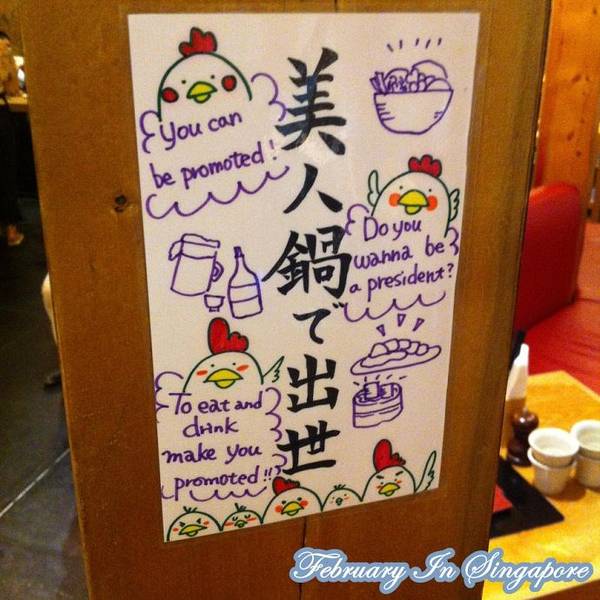 You can
be promoted!
美人鍋で出世
Do you
wanna be
a president?
To eat and
drink
make you
promoted!!
February In Singapore